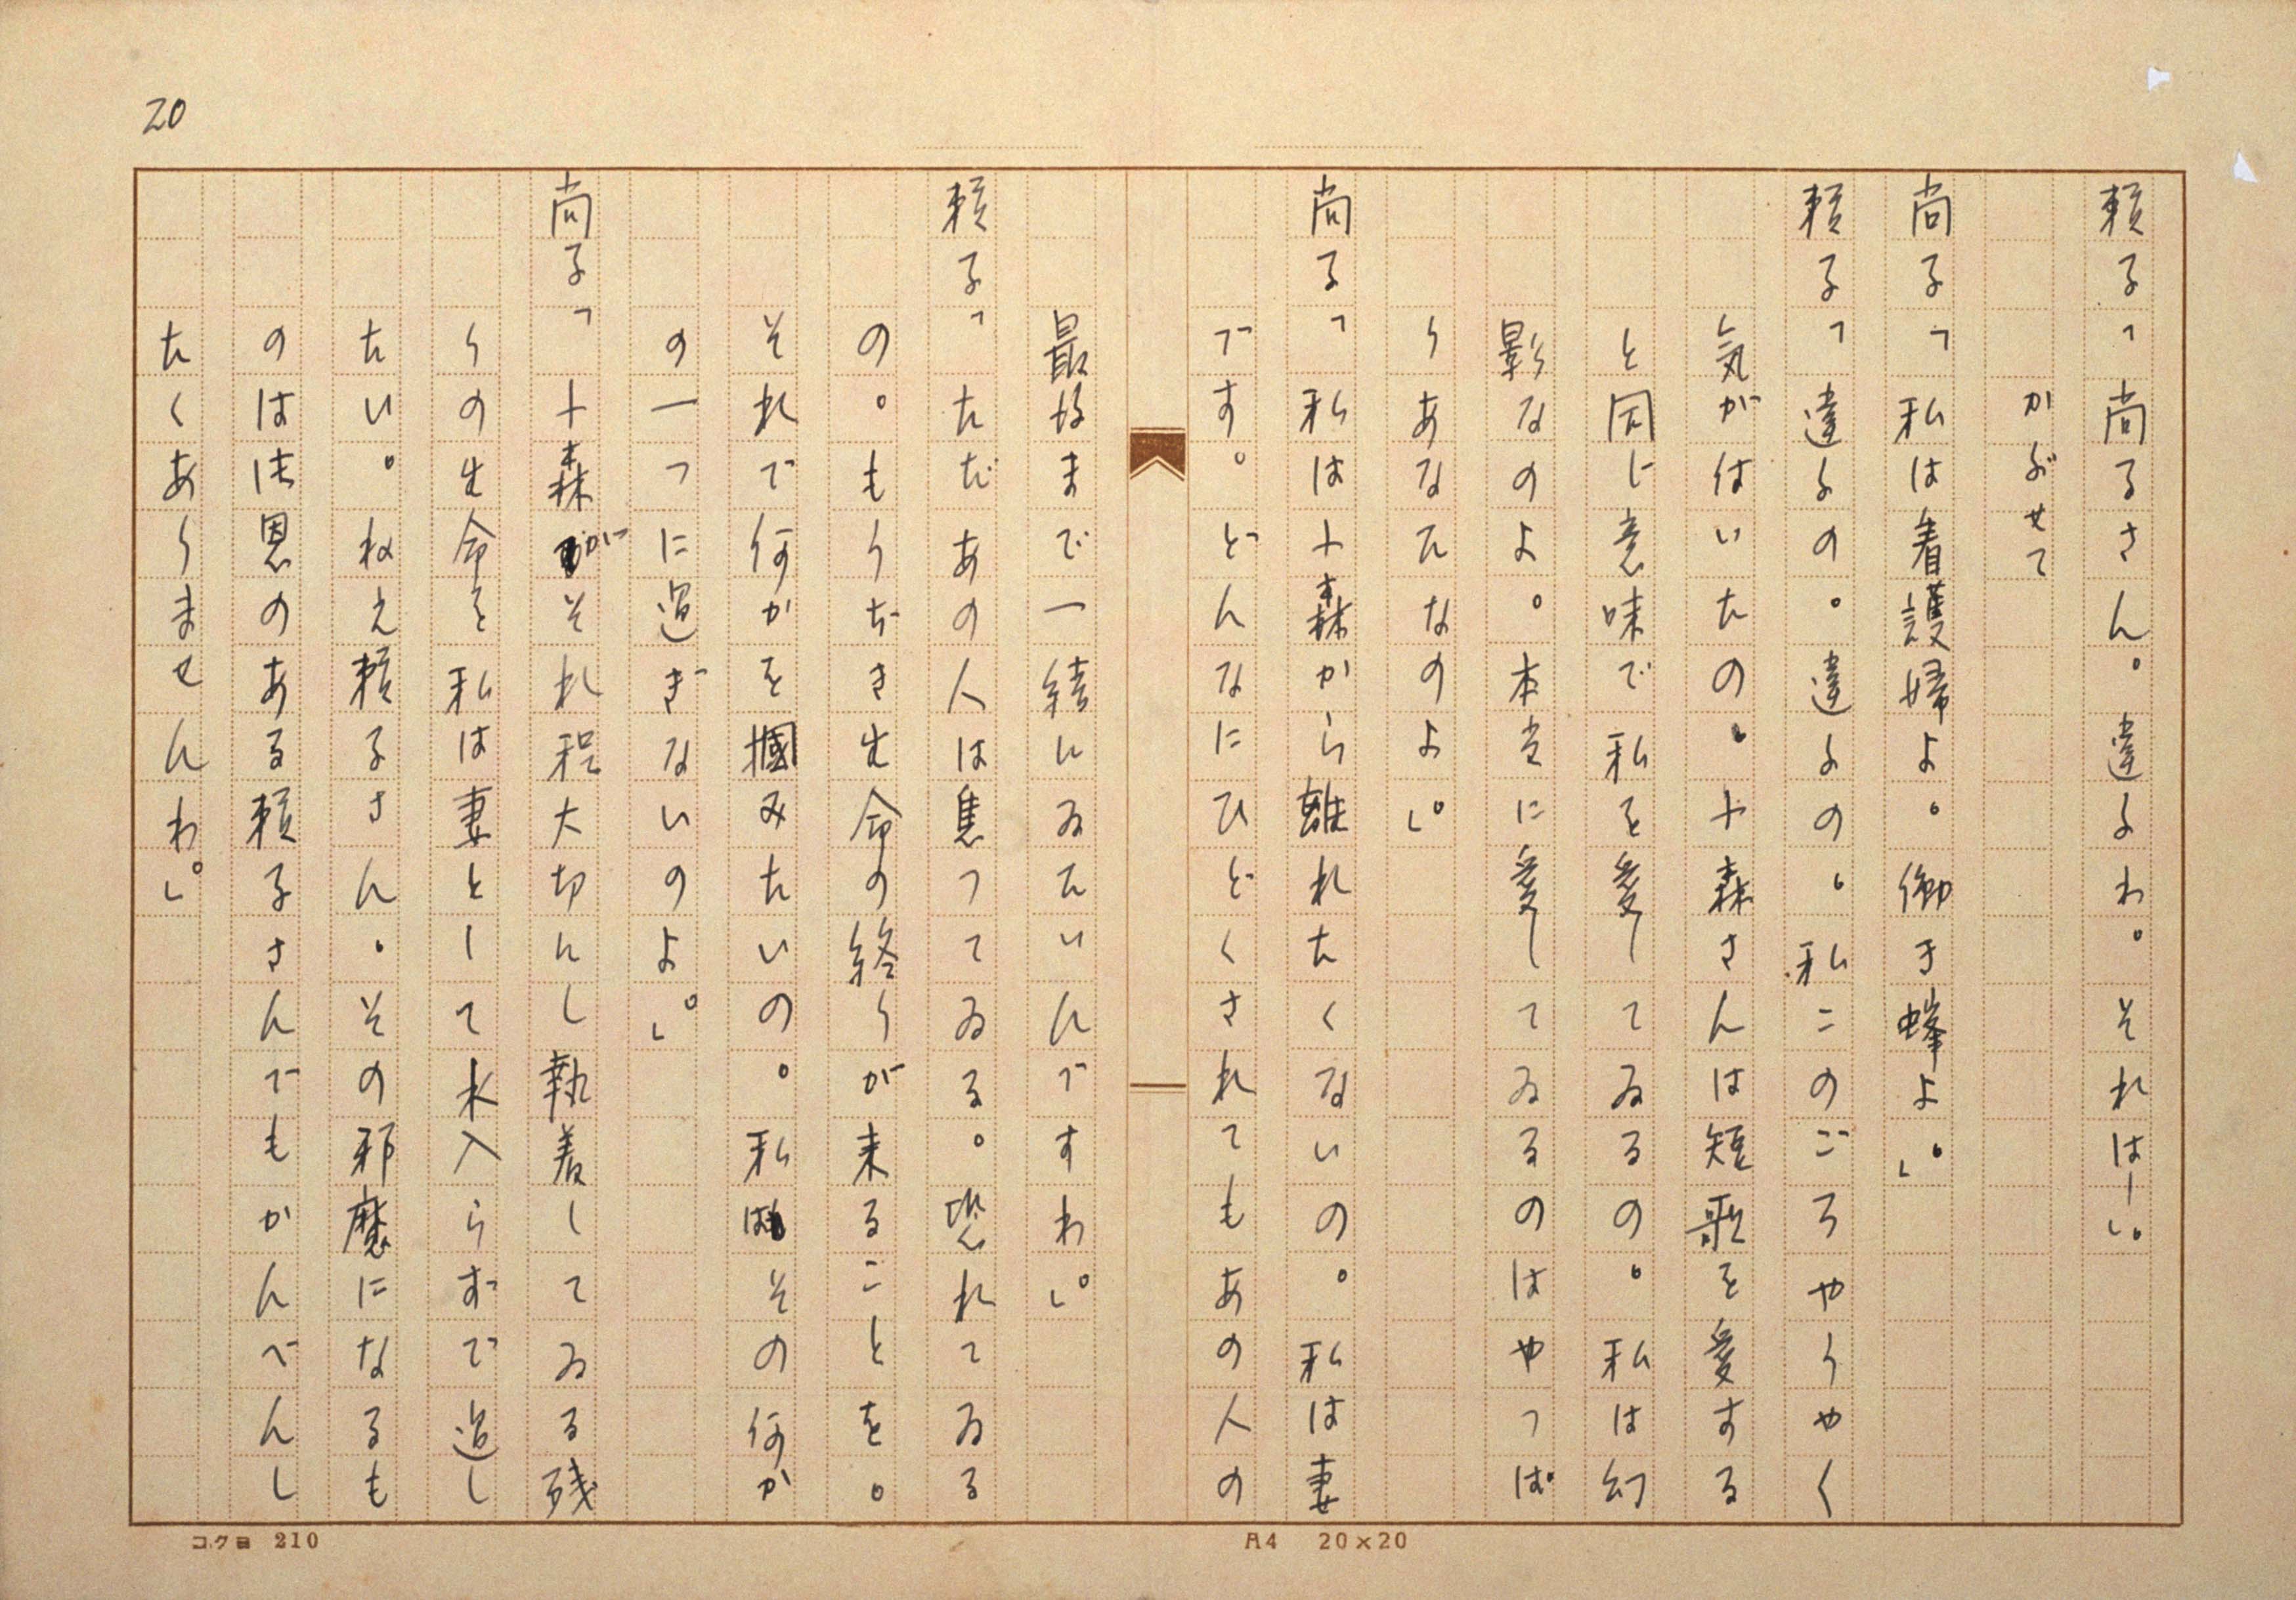 20
頼子「尚子さん。違よわ。それは―」
かぶせて
尚子「私は看護婦よ。働き蜂よ。」
頼子「違よの。違よの。私このごろやうやく
気が付いたの。小森さんは短歌を愛する
と同じ意味で私を愛してゐるの。私は幻
影なのよ。本当に愛してゐるのはやつぱ
りあなたなのよ。」
尚子「私は小森から離れたくないの。私は妻
です。どんなにひどくされてもあの人の
最後まで一緒にゐたいんですわ。」
頼子「ただあの人は焦つてゐる。恐れてゐる
の。もうぢき生命の終りが来ることを。
それで何かを摑みたいの。私はその何か
の一つに過ぎないのよ。」
尚子「小森がそれ程大切にし執着してゐる残
りの生命を私は妻として水入らずで過し
たい。ねえ頼子さん。その邪魔になるも
のは恩のある頼子さんでもかんべんし
たくありませんわ。」
コクヨ 210
A4 20×20